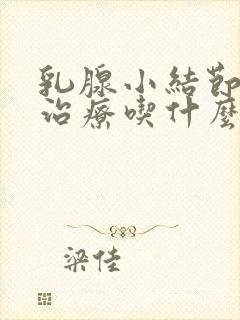 乳腺小結節
治療喫什麼
梁佳